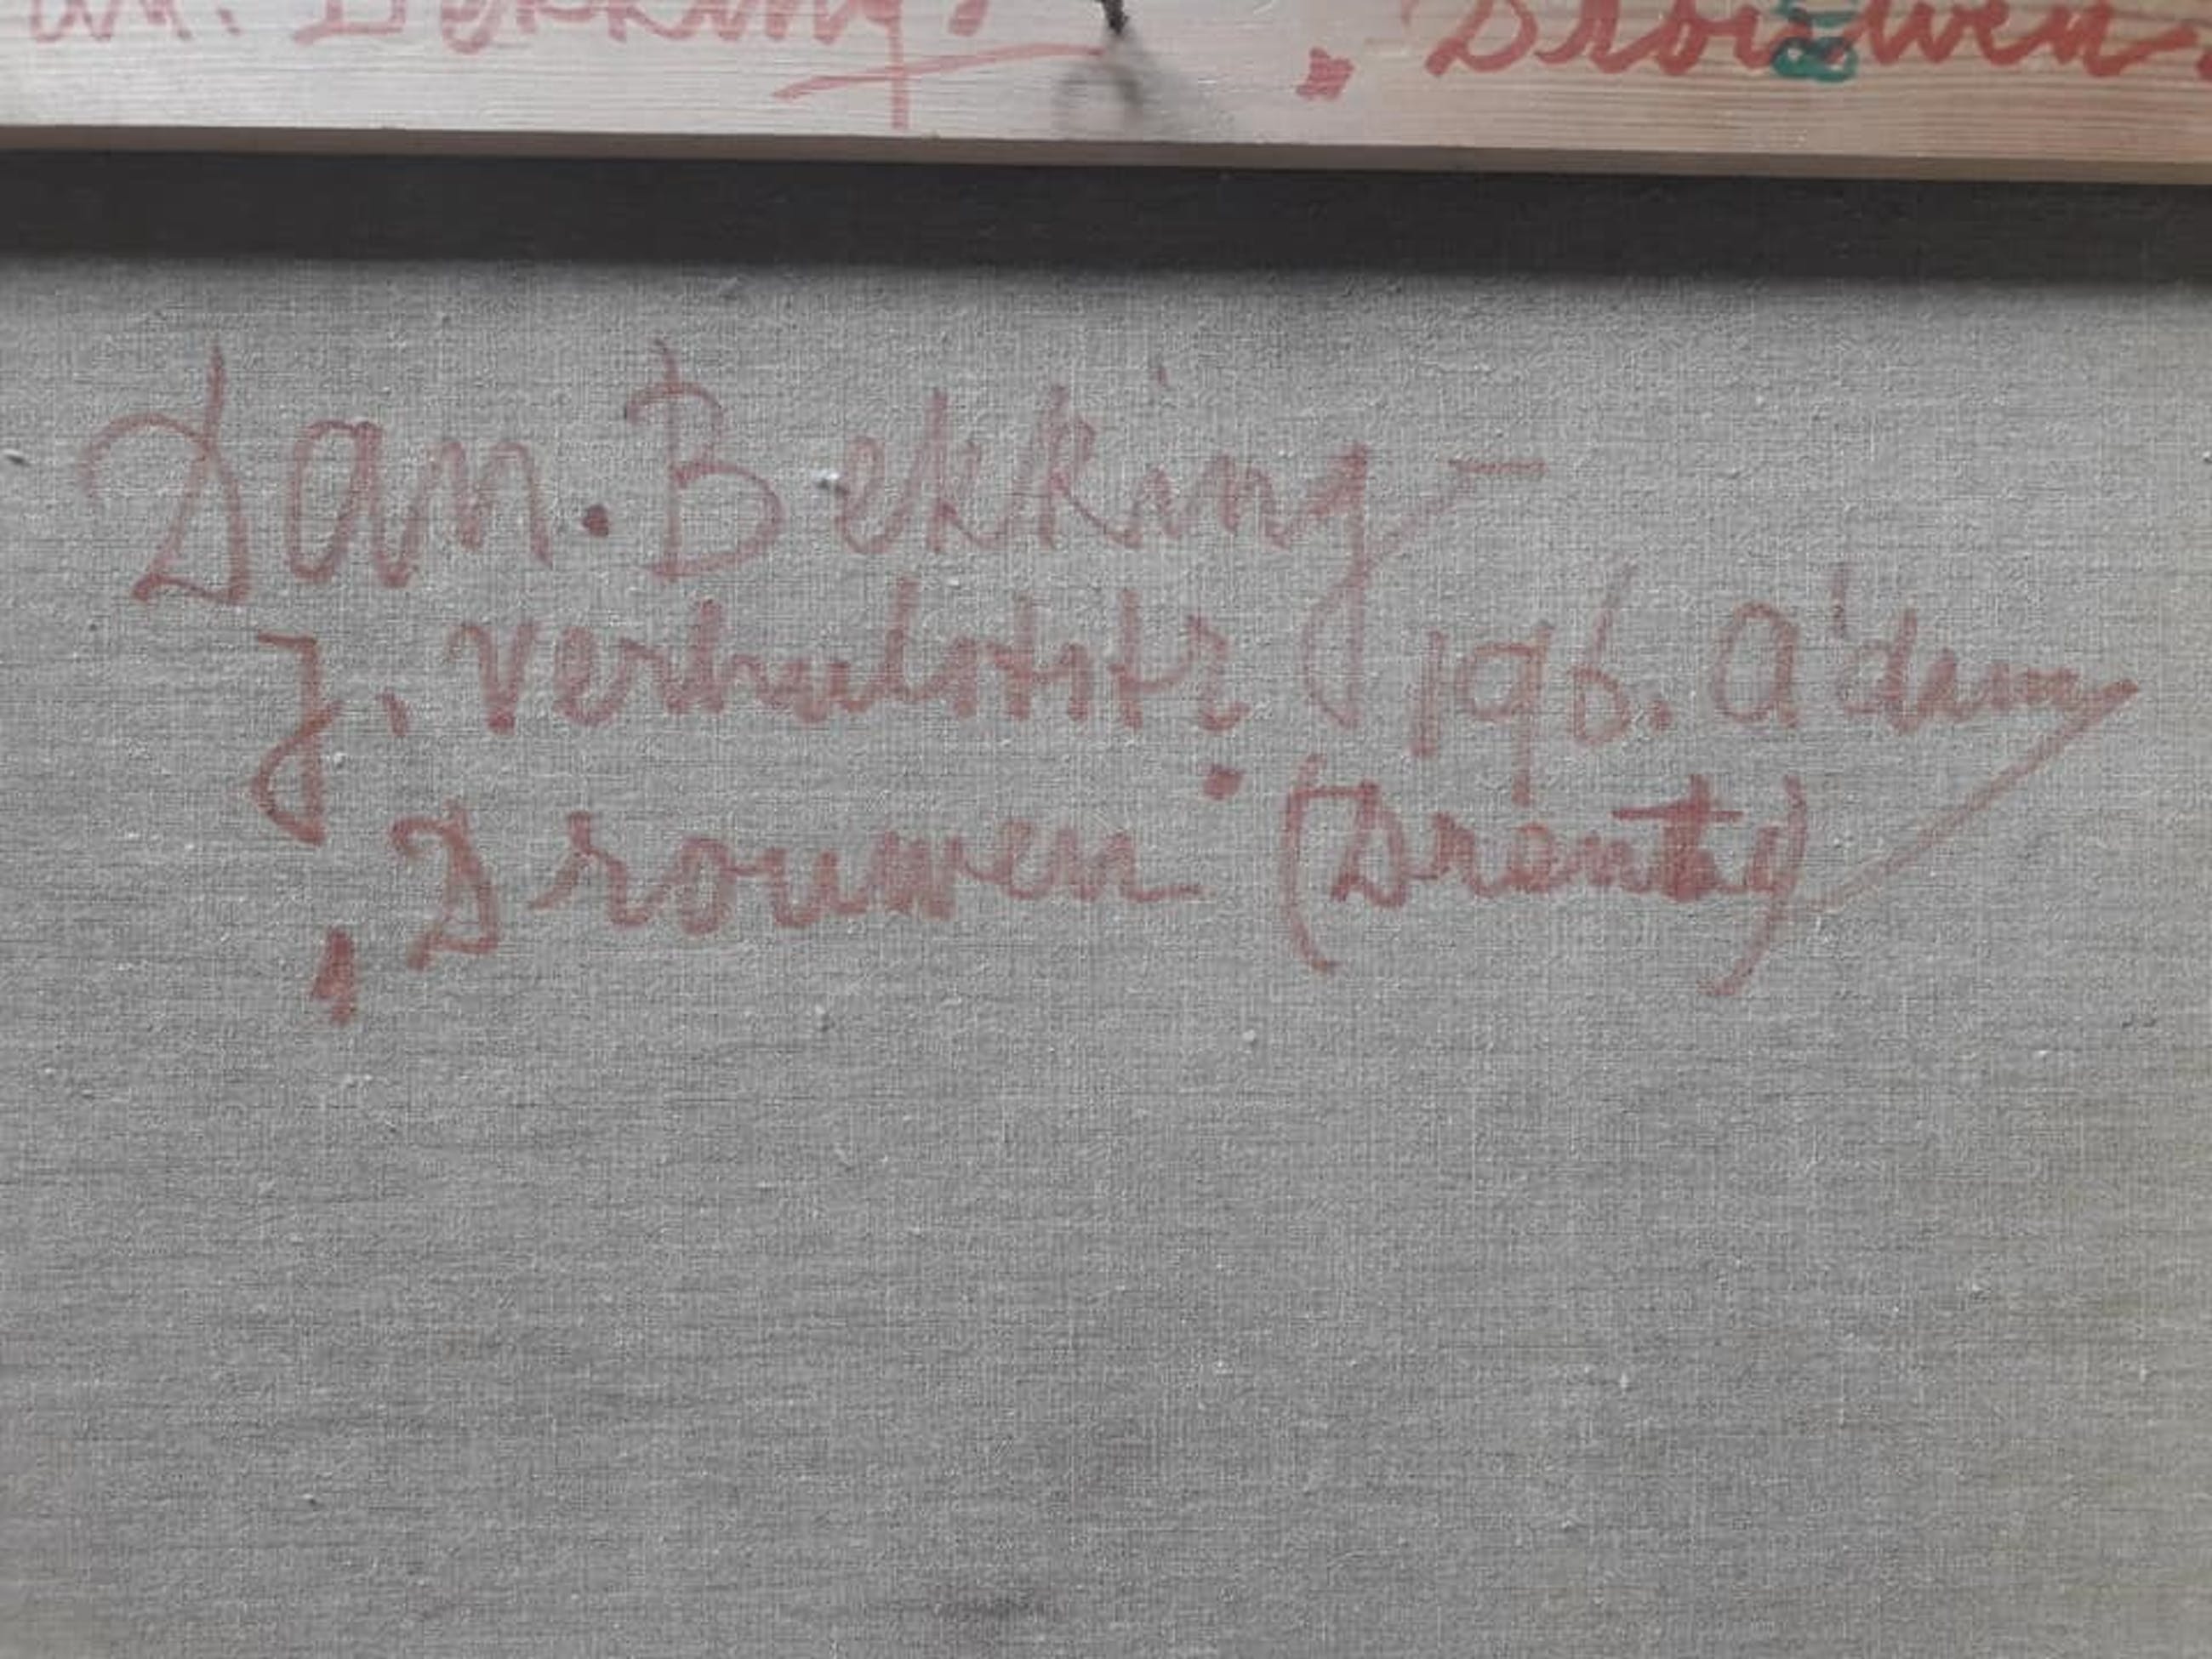 an. Bekking. Drouwen
Dan. Bekking
J. Verhulststr. 196. A'dam
Drouwen (Drente)